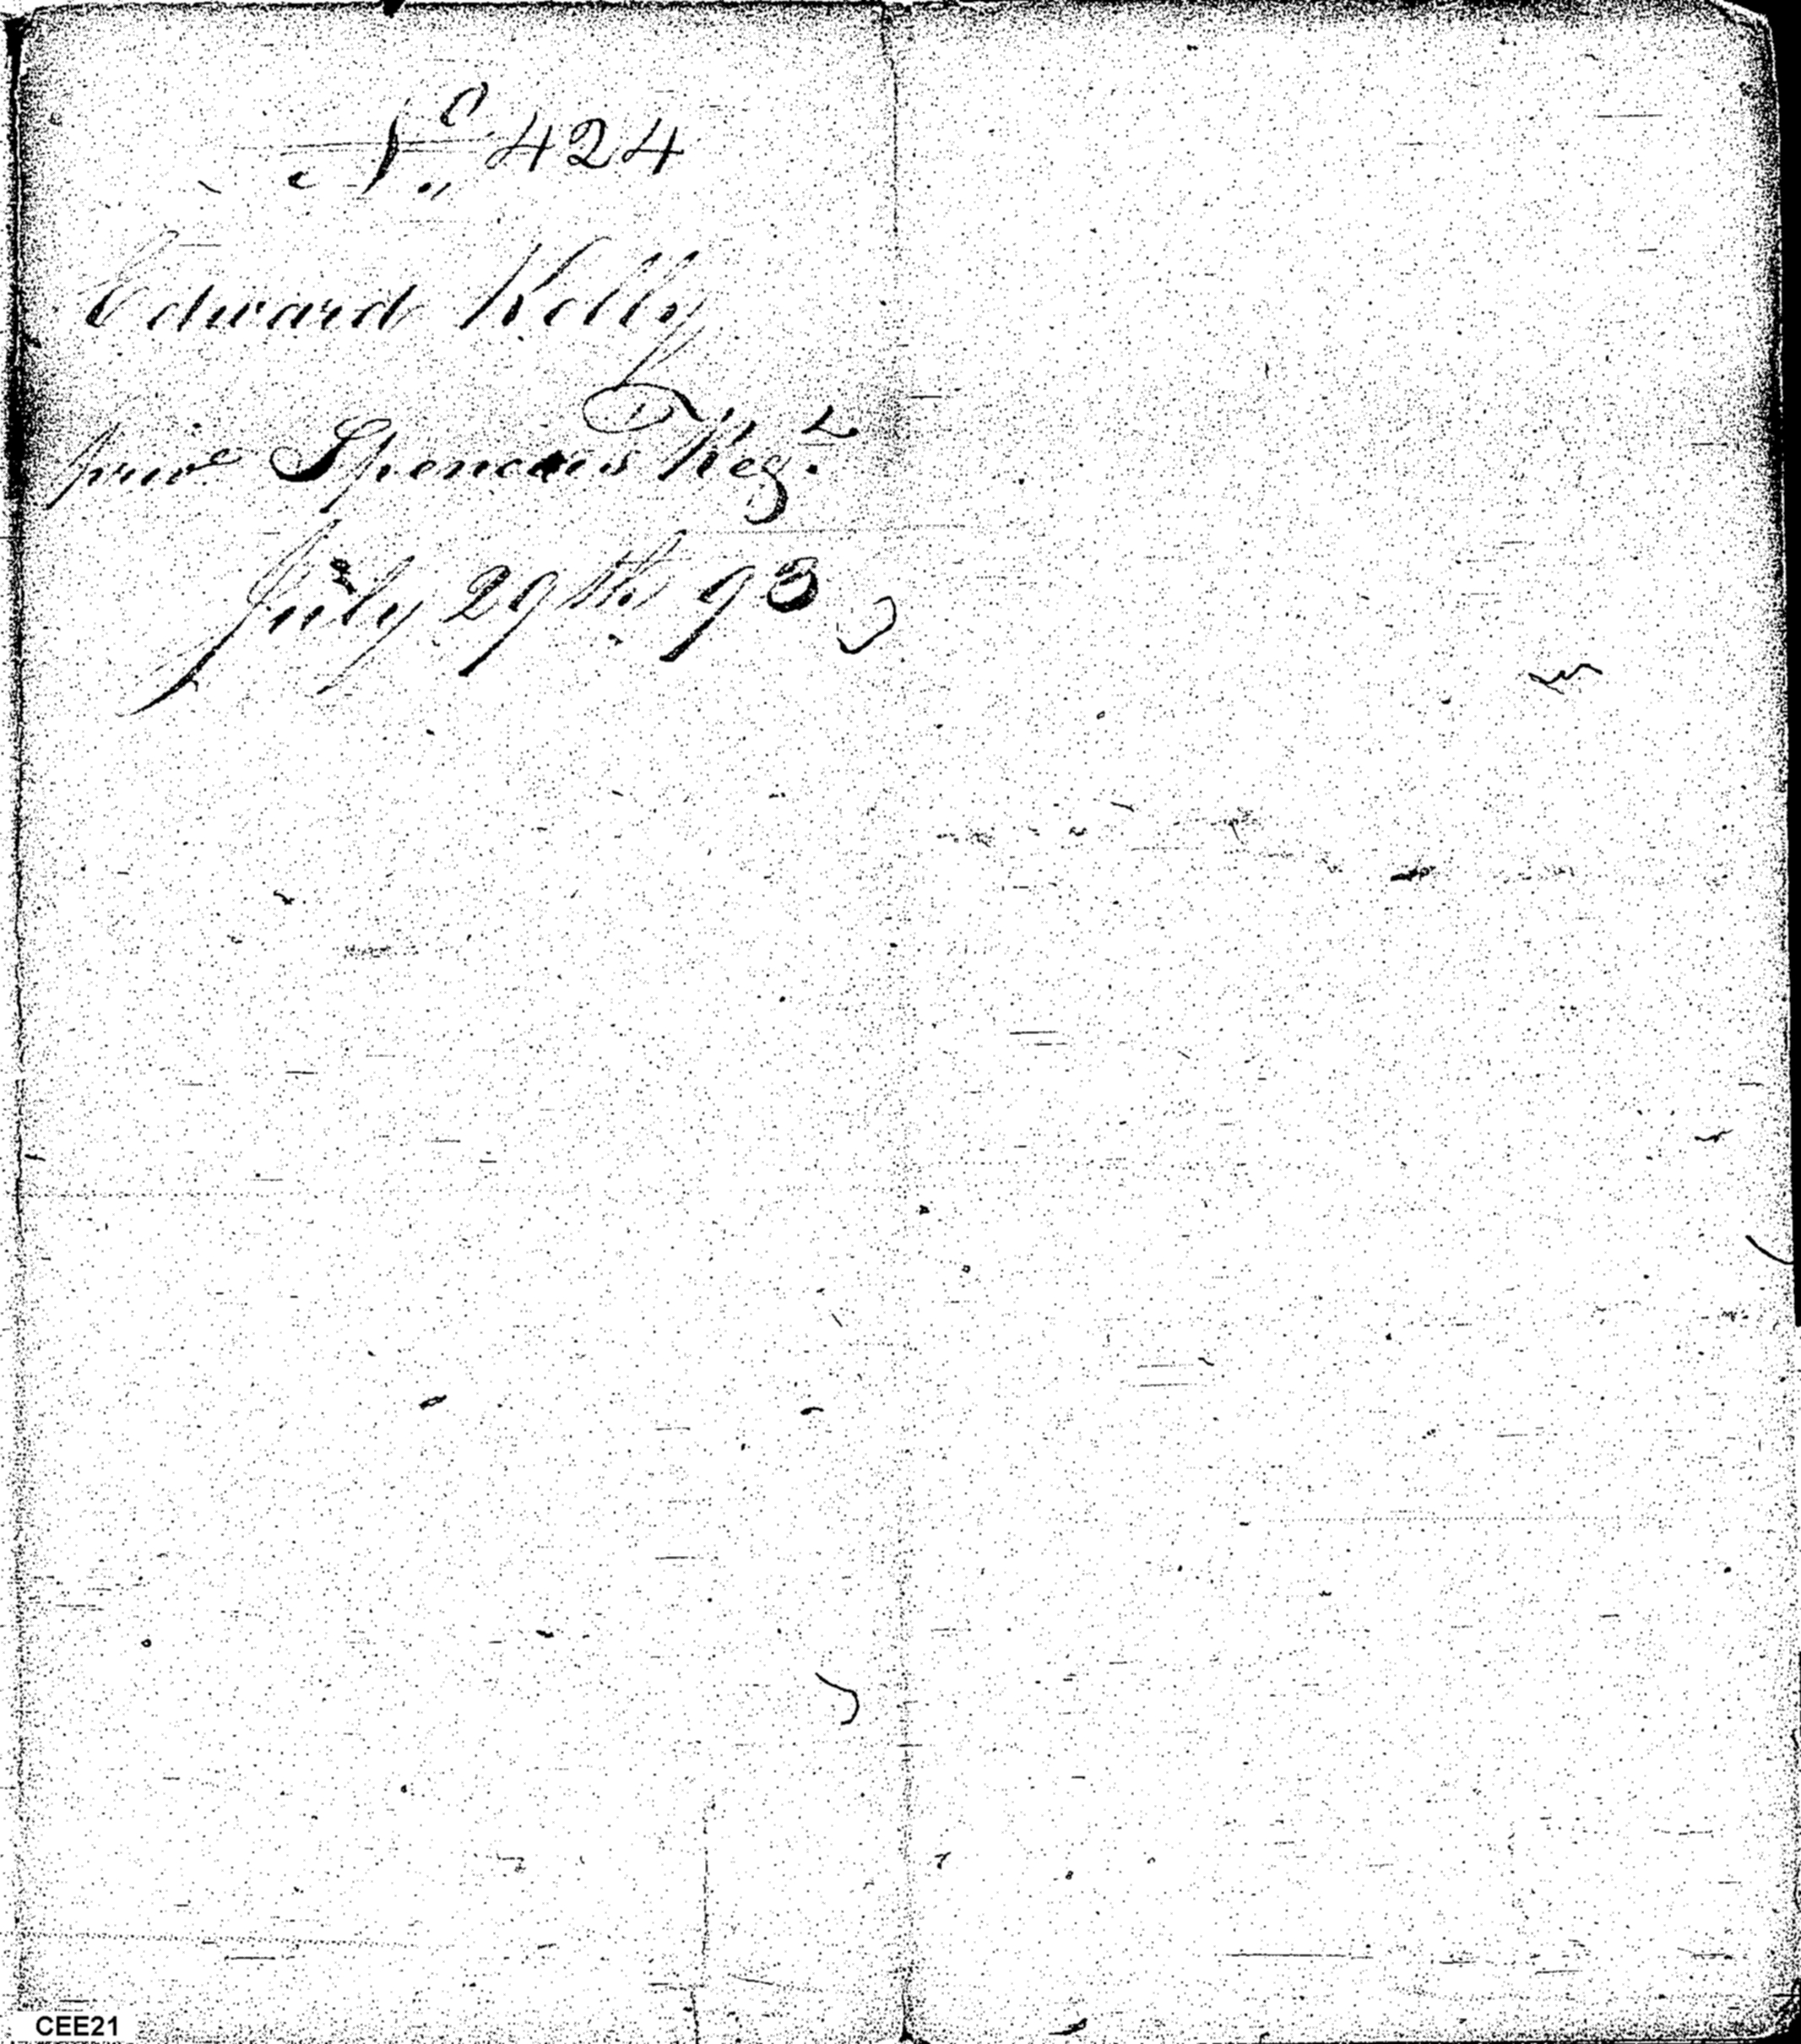 No. 424
Edward Kelly
prive Spencers Regt.
July 29th 93
CEE21